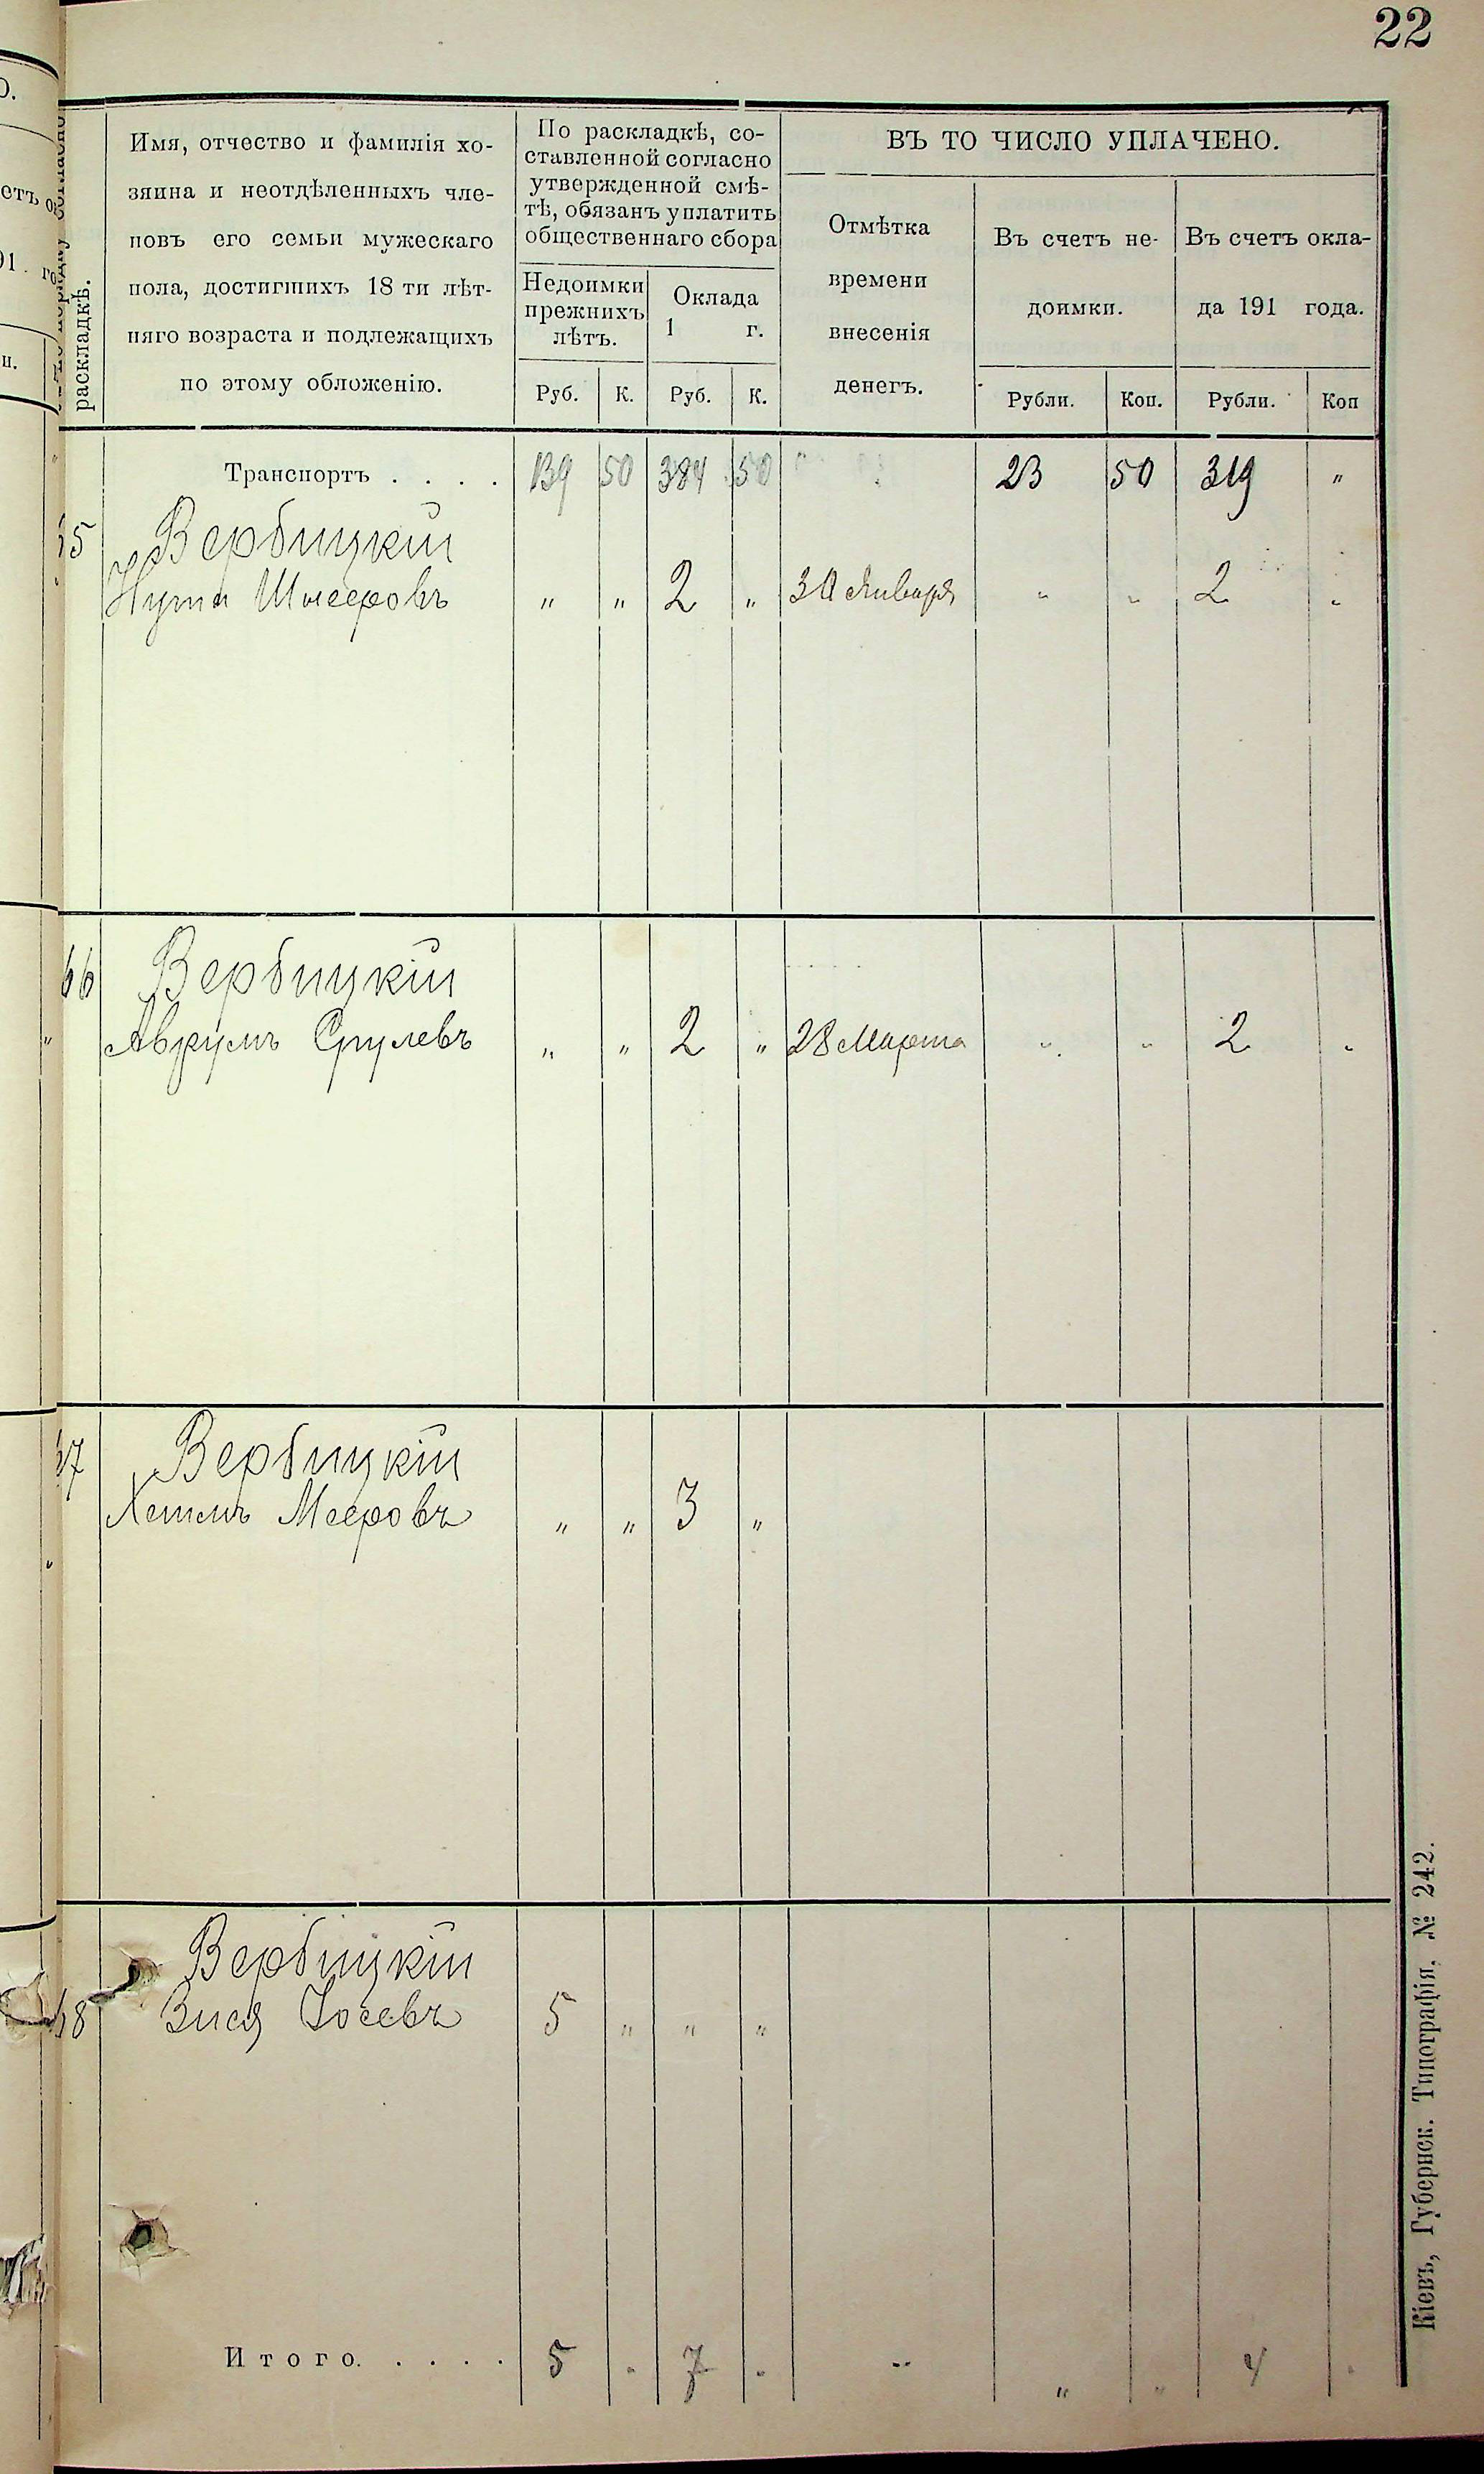 22
раскладкѣ.
Имя, отчество и фамилія хо-
зяина и неотдѣленныхъ чле-
новъ его семьи мужескаго
пола, достигшихъ 18 ти лѣт-
няго возраста и подлежащихъ
по этому обложенію.
По раскладкѣ, со-
ставленной согласно
утвержденной смѣ-
тѣ, обязанъ уплатить
общественнаго сбора
Недоимки
прежнихъ
лѣтъ.
Оклада
1 г.
Руб. К. Руб. К.
ВЪ ТО ЧИСЛО УПЛАЧЕНО.
Отмѣтка
времени
внесенія
денегъ.
Въ счетъ не-
доимки.
Въ счетъ окла-
да 191 года.
Рубли. Коп. Рубли. Коп
Транспортъ . . . . 139 50 384 50 23 50 319 "
Вербицкій
" " 2 " 30 Января " " 2 "
66 Вербицкій
Аврумъ Срулевъ " " 2 " 28 Марта " " 2 "
Вербицкій
Хаимъ Мееровъ " " 3 "
Вербицкій
Зися Іосевъ 5 " " "
Итого. . . . . 5 " 7 " " " 4 "
Кіевъ, Губернск. Типографія, № 242.